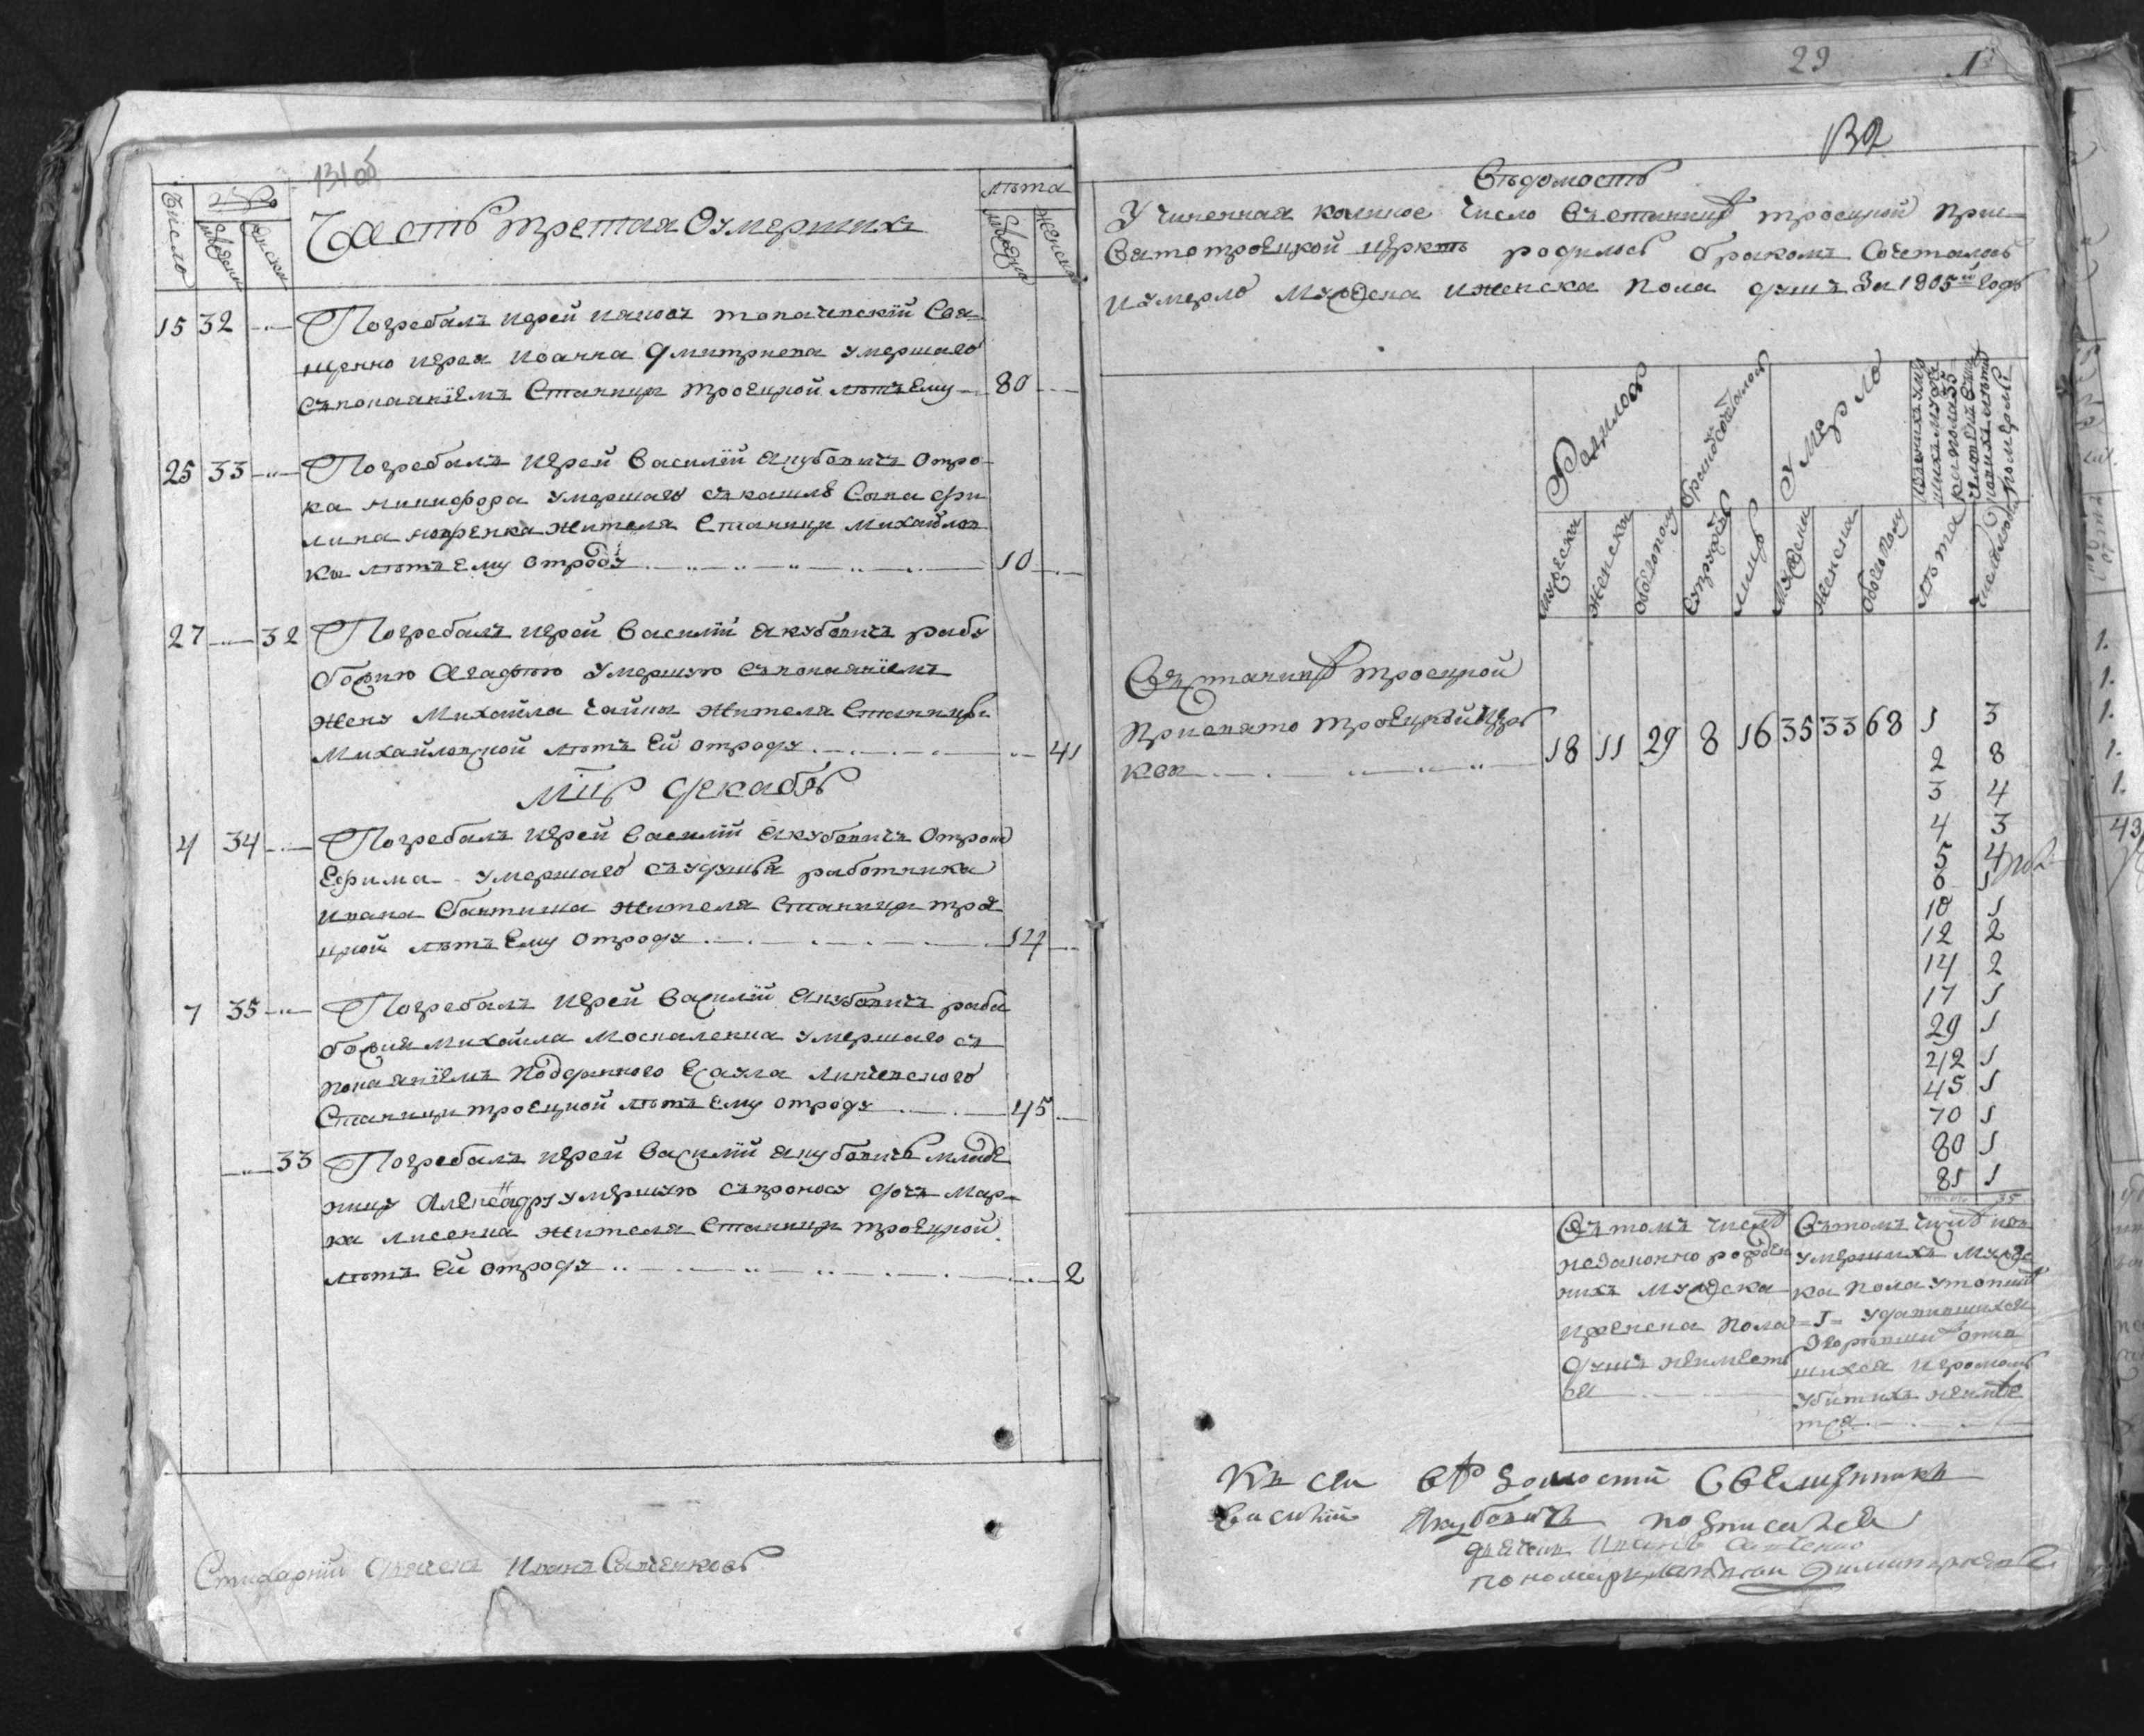 131 об
Число
мужеска
женска
Часть третая О умерших
лѣта
мужеска
женска
15 32 Погребалъ иерей Свя-
щенно иерея Иоанна Дмитриева умершаго
съ покаяніемъ Станици Троецкой лѣтъ ему 80
25 33 Погребалъ иерей Василій Якубовичъ отро-
ка Никифора умершаго съ кашлю сына Фи
липа жителя Станици Михайлов
ка лѣтъ ему отроду 10
27 32 Погребалъ иерей Василій Якубовичъ рабу
божию Агафию умершую съ покаяніемъ
жену Михайла жителя Станици
Михайловской лѣтъ ей отроду 41
Мць Декабрь
4 34 Погребалъ иерей Василій Якубовичъ отрока
Ефима умершаго съ удушья работника
Ивана жителя Станици Трое
цкой лѣтъ ему отроду 14
7 35 Погребалъ иерей Василій Якубовичъ раба
божия Михайла Москаленка умершаго съ
покаяніемъ подданного Есаула
Станици Троецкой лѣтъ ему отроду 45
33 Погребалъ иерей Василій Якубовичъ младе
ницу Александру умершую съ дочь Мар-
ка Лисенка жителя Станици Троецкой
лѣтъ ей отроду 2
Стихарній Дьячекъ Иванъ Савченковъ
29
132
Вѣдомость
Учиненная коликое число въ станицѣ Троецкой при
Святотроецкой церквѣ родилось бракомъ сочеталось
и умерло мужеска и женска пола душъ за 1805й годъ
Родилось
бракосочеталось
Умерло
мужеска
женска
обоего полу
супружествъ
лицъ
мужеска
женска
обоего полу
лѣта
Въ станицѣ Троецкой
при Свято Троецкой цер
кви 18 11 29 8 16 35 33 68
1 3
2 8
3 4
4 3
5 4
6 1
10 1
12 2
14 2
17 1
29 1
42 1
45 1
70 1
80 1
85 1
35
Въ томъ числѣ
незаконно рожден
нихъ мужеска
и женска пола
душъ неимеет
ся
Въ томъ числѣ
умершихъ мужес
ка пола утопш
=1= удавившихся
шихся и громомъ
убитихъ неимѣе
тся
Къ сей вѣдомости Священникъ
Василій Якубовичъ подписался
дьячекъ Иванъ Савченко
пономарь Димитриевъ